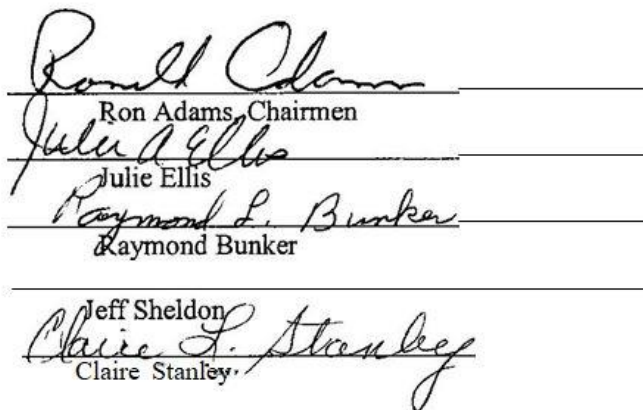 Ronald Adams
Ron Adams, Chairmen
Julie A Ellis
Julie Ellis
Raymond L. Bunker
Raymond Bunker
Jeff Sheldon
Claire L. Stanley
Claire Stanley